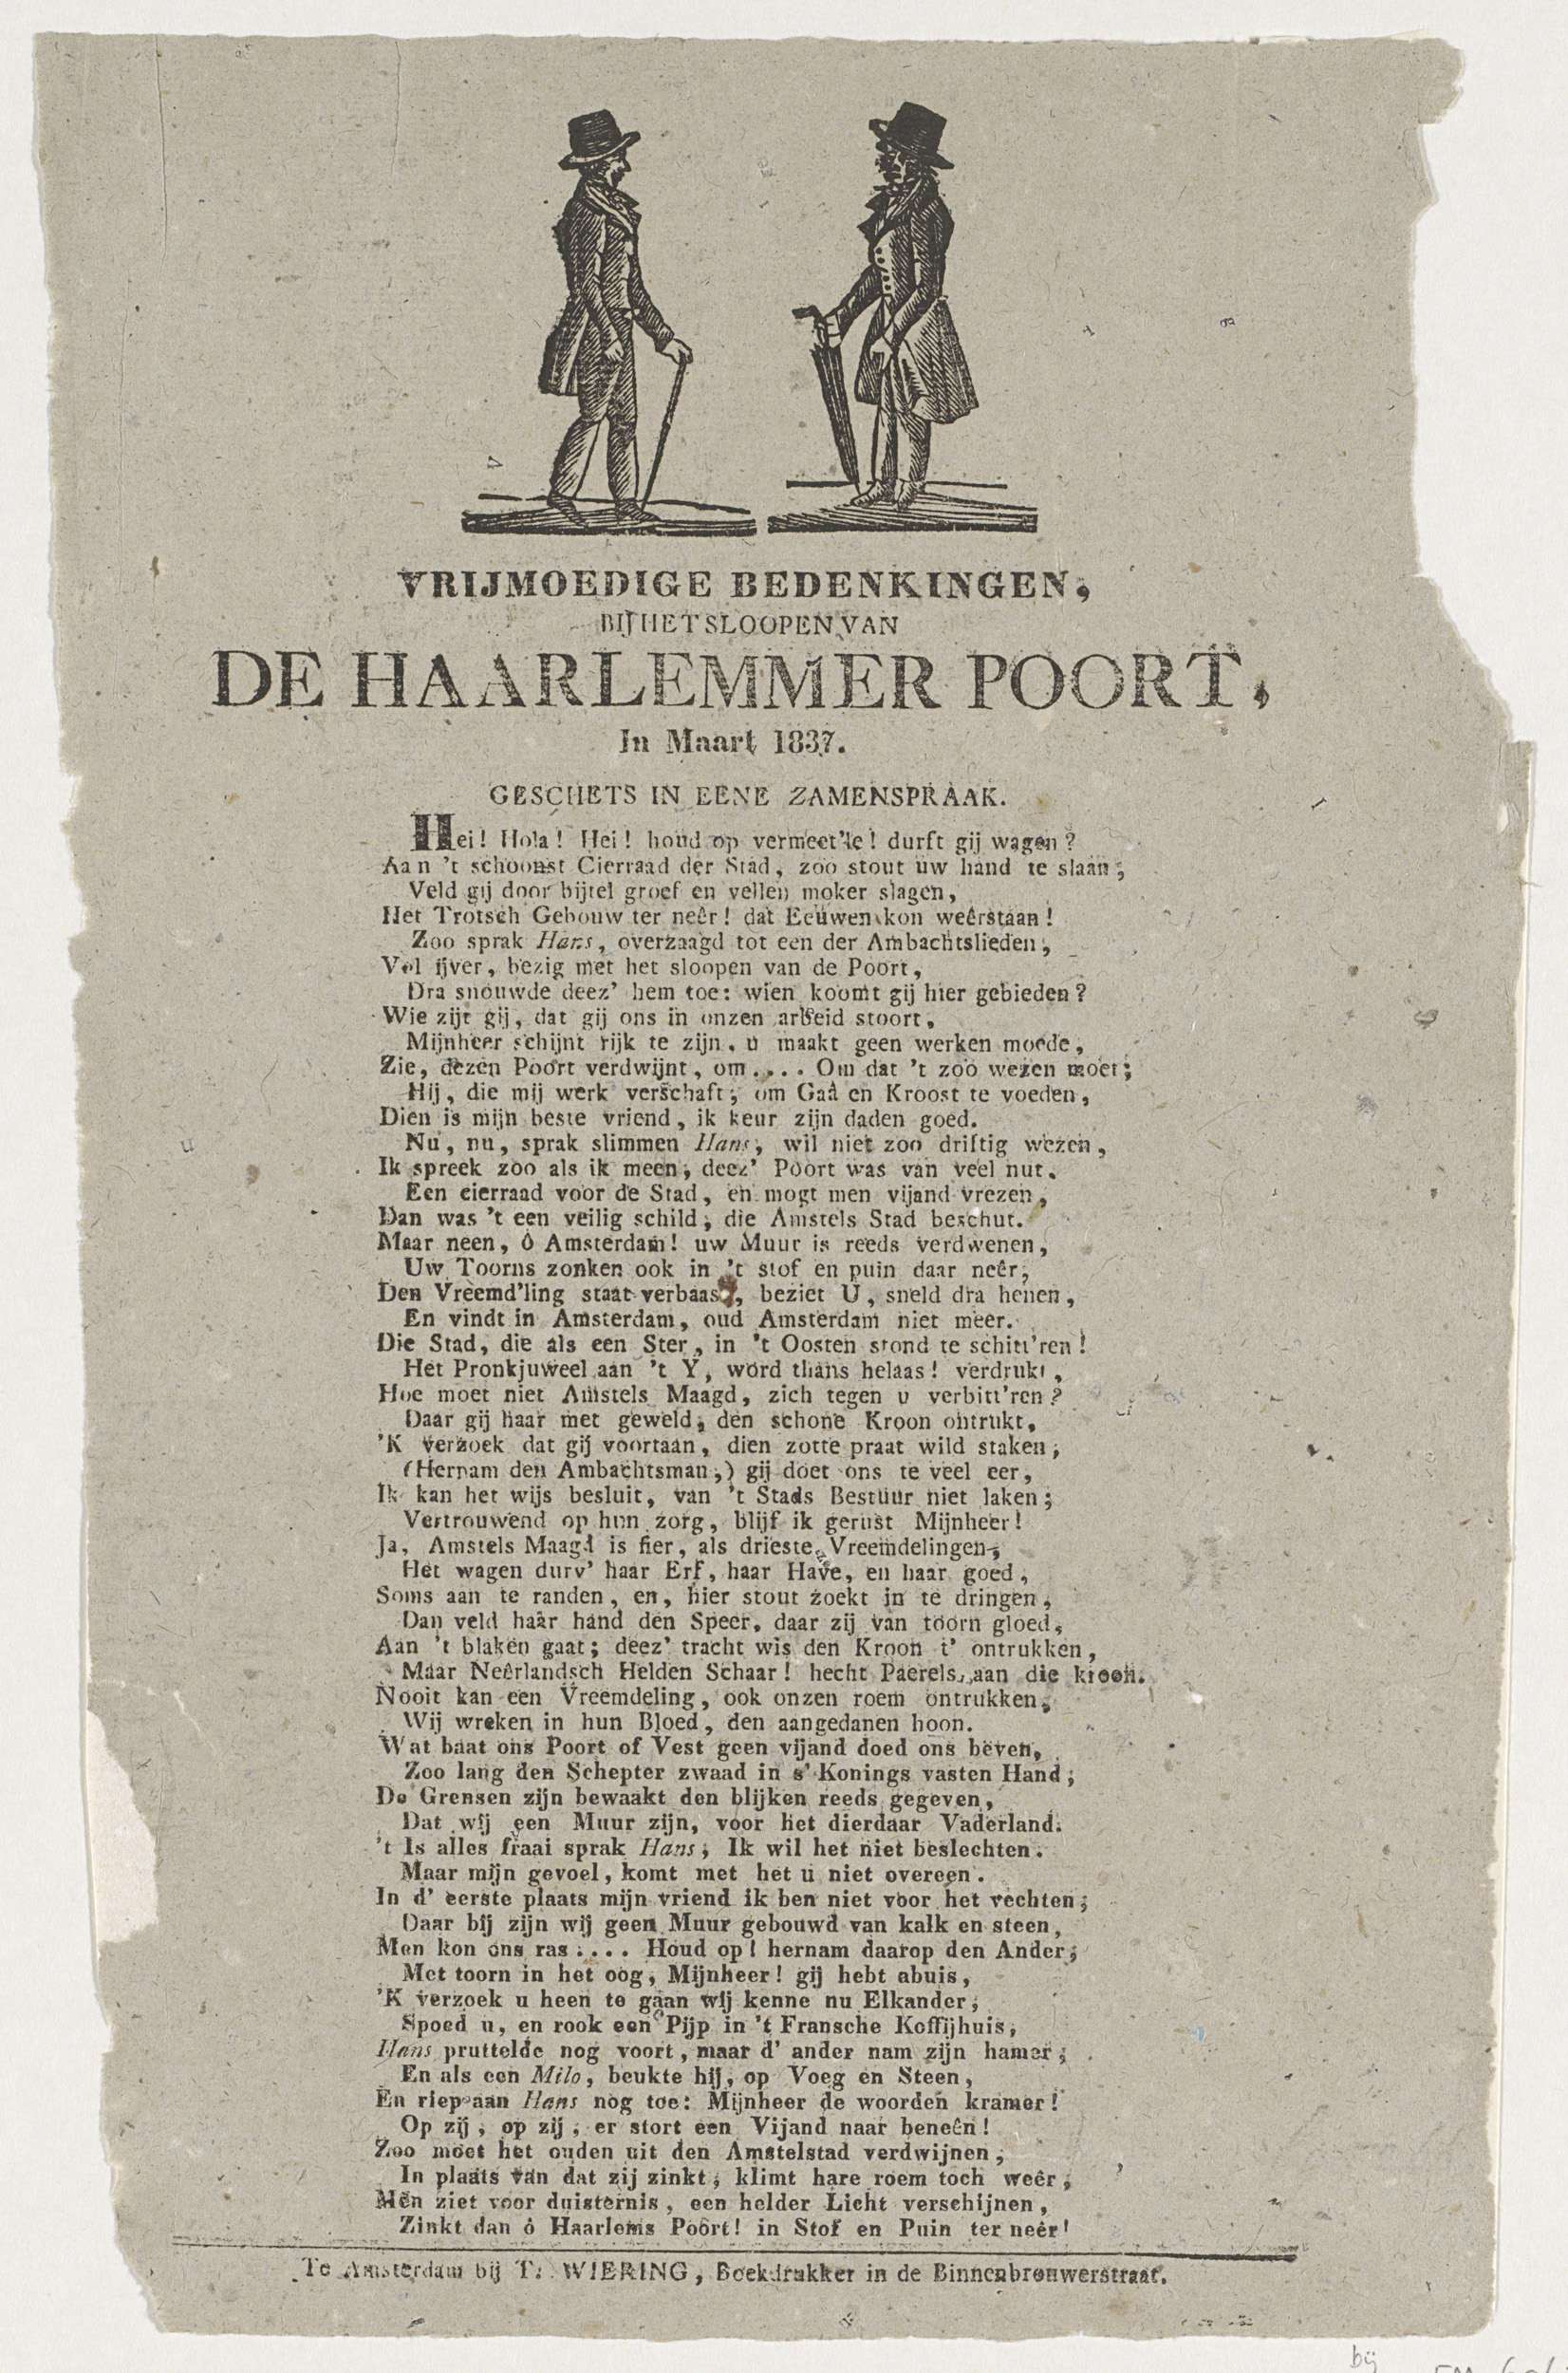 VRIJMOEDIGE BEDENKINGEN,
BIJ HET SLOOPEN VAN
DE HAARLEMMER POORT,
In Maart 1837.
GESCHETS IN EENE ZAMENSPRAAK.
Hei! Hola! Hei! houd op vermeet'le! durft gij wagen?
Aan 't schoonst Cierraad der Stad, zoo stout uw hand te slaan;
Veld gij door bijtel groef en vellen moker slagen,
Het Trotsch Gebouw ter neêr! dat Eeuwen kon weêrstaan!
Zoo sprak Hans, overzaagd tot een der Ambachtslieden,
Vol ijver, bezig met het sloopen van de Poort,
Dra snouwde deez' hem toe: wien koomt gij hier gebieden?
Wie zijt gij, dat gij ons in onzen arbeid stoort,
Mijnheer schijnt rijk te zijn, u maakt geen werken moede,
Zie, dezen Poort verdwijnt, om.... Om dat 't zoo wezen moet;
Hij, die mij werk verschaft, om Gaâ en Kroost te voeden,
Dien is mijn beste vriend, ik keur zijn daden goed.
Nu, nu, sprak slimmen Hans, wil niet zoo driftig wezen,
Ik spreek zoo als ik meen, deez' Poort was van veel nut.
Een cierraad voor de Stad, en mogt men vijand vrezen,
Dan was 't een veilig schild, die Amstels Stad beschut.
Maar neen, ô Amsterdam! uw Muur is reeds verdwenen,
Uw Toorns zonken ook in 't stof en puin daar neêr,
Den Vreemd'ling staat verbaasd, beziet U, sneld dra henen,
En vindt in Amsterdam, oud Amsterdam niet meer.
Die Stad, die als een Ster, in 't Oosten stond te schitt'ren!
Het Pronkjuweel aan 't Y, word thans helaas! verdrukt,
Hoe moet niet Amstels Maagd, zich tegen u verbitt'ren?
Daar gij haar met geweld, den schone Kroon ontrukt,
'K verzoek dat gij voortaan, dien zotte praat wild staken,
(Hernam den Ambachtsman,) gij doet ons te veel eer,
Ik kan het wijs besluit, van 't Stads Bestuur niet laken;
Vertrouwend op hun zorg, blijf ik gerust Mijnheer!
Ja, Amstels Maagd is fier, als drieste Vreemdelingen,
Het wagen durv' haar Erf, haar Have, en haar goed,
Soms aan te randen, en, hier stout zoekt in te dringen,
Dan veld haar hand den Speer, daar zij van toorn gloed,
Aan 't blaken gaat; deez' tracht wis den Kroon t' ontrukken,
Maar Neêrlandsch Helden Schaar! hecht Paerels, aan die kroon.
Nooit kan een Vreemdeling, ook onzen roem ontrukken,
Wij wreken in hun Bloed, den aangedanen hoon.
Wat baat ons Poort of Vest geen vijand doed ons beven,
Zoo lang den Schepter zwaad in s' Konings vasten Hand;
De Grensen zijn bewaakt den blijken reeds gegeven,
Dat wij een Muur zijn, voor het dierdaar Vaderland.
't Is alles fraai sprak Hans, Ik wil het niet beslechten.
Maar mijn gevoel, komt met het u niet overeen.
In d' eerste plaats mijn vriend ik ben niet voor het vechten;
Daar bij zijn wij geen Muur gebouwd van kalk en steen,
Men kon ons ras.... Houd op! hernam daarop den Ander,
Met toorn in het oog, Mijnheer! gij hebt abuis,
'K verzoek u heen te gaan wij kenne nu Elkander,
Spoed u, en rook een Pijp in 't Fransche Koffijhuis,
Hans pruttelde nog voort, maar d' ander nam zijn hamer,
En als een Milo, beukte hij, op Voeg en Steen,
En riep aan Hans nog toe: Mijnheer de woorden kramer!
Op zij, op zij, er stort een Vijand naar beneên!
Zoo moet het ouden uit den Amstelstad verdwijnen,
In plaats van dat zij zinkt, klimt hare roem toch weêr,
Men ziet voor duisternis, een helder Licht verschijnen,
Zinkt dan ô Haarlems Poort! in Stof en Puin ter neêr!
Te Amsterdam bij T. WIERING, Boekdrukker in de Binnenbrouwerstraat.
bij